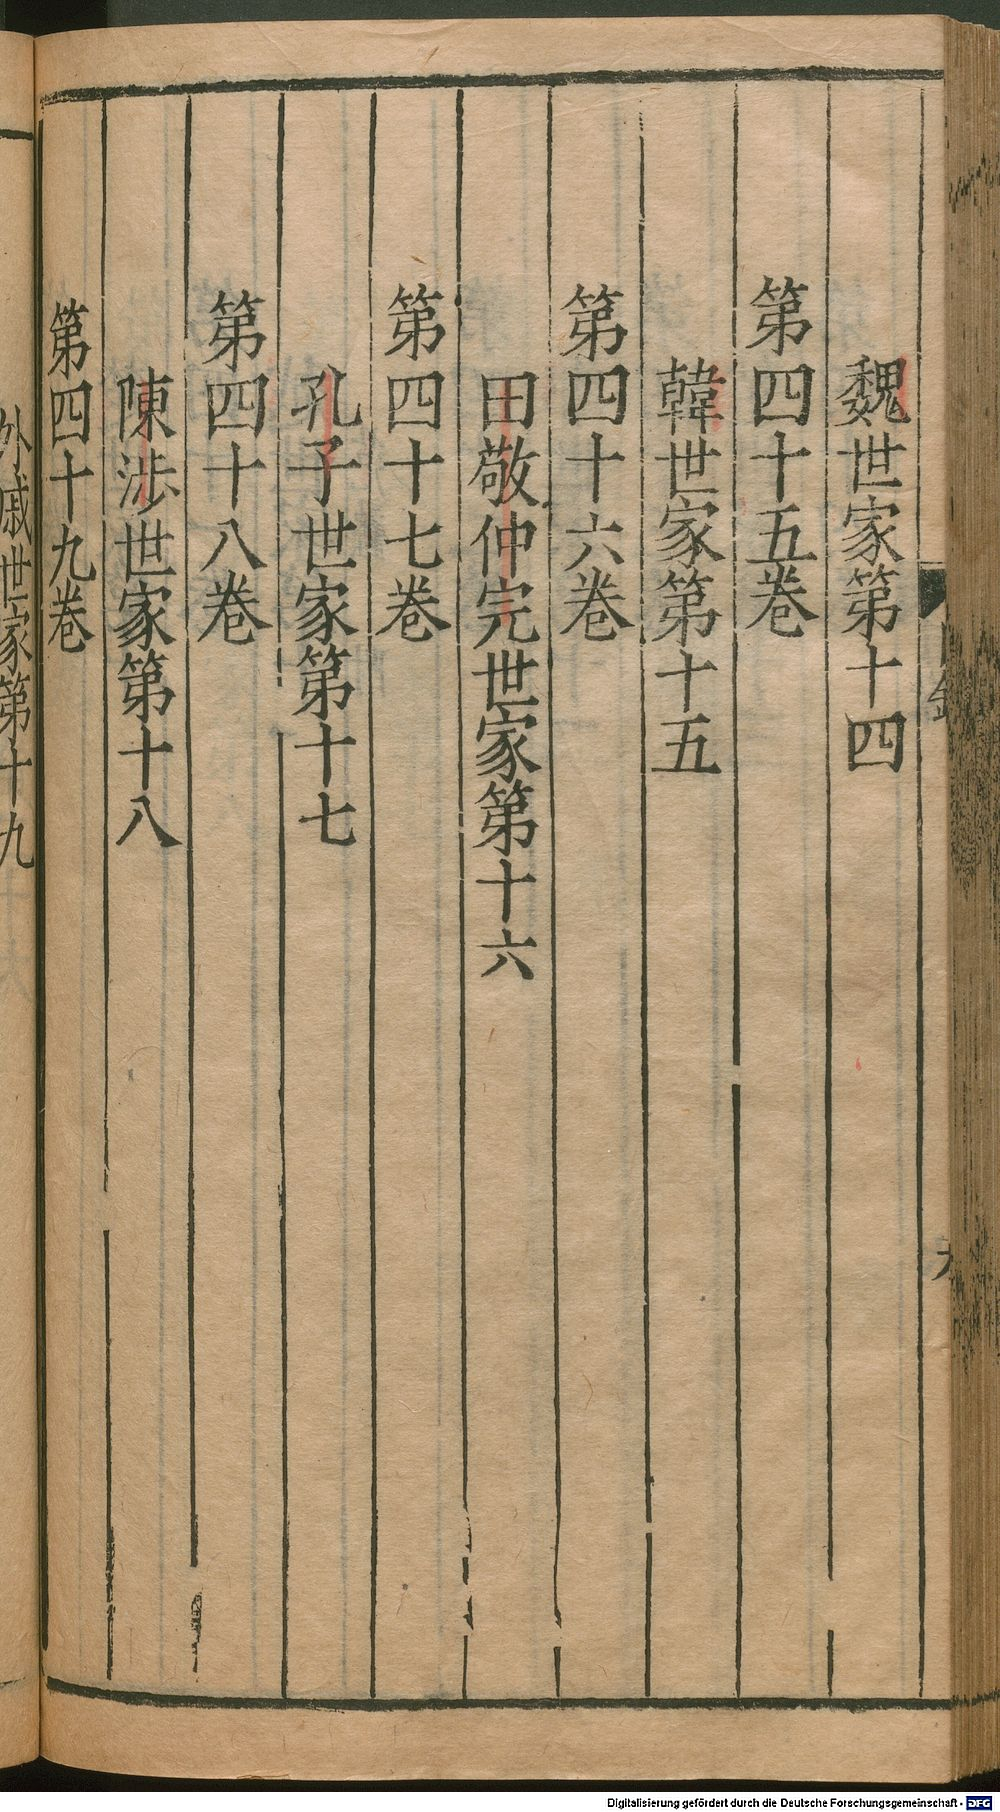 魏世家第十四
第四十五卷
韓世家第十五
第四十六卷
田敬仲完世家第十六
第四十七卷
孔子世家第十七
第四十八卷
陳涉世家第十八
第四十九卷
外戚世家第十九
Digitalisierung gefördert durch die Deutsche Forschungsgemeinschaft - DFG